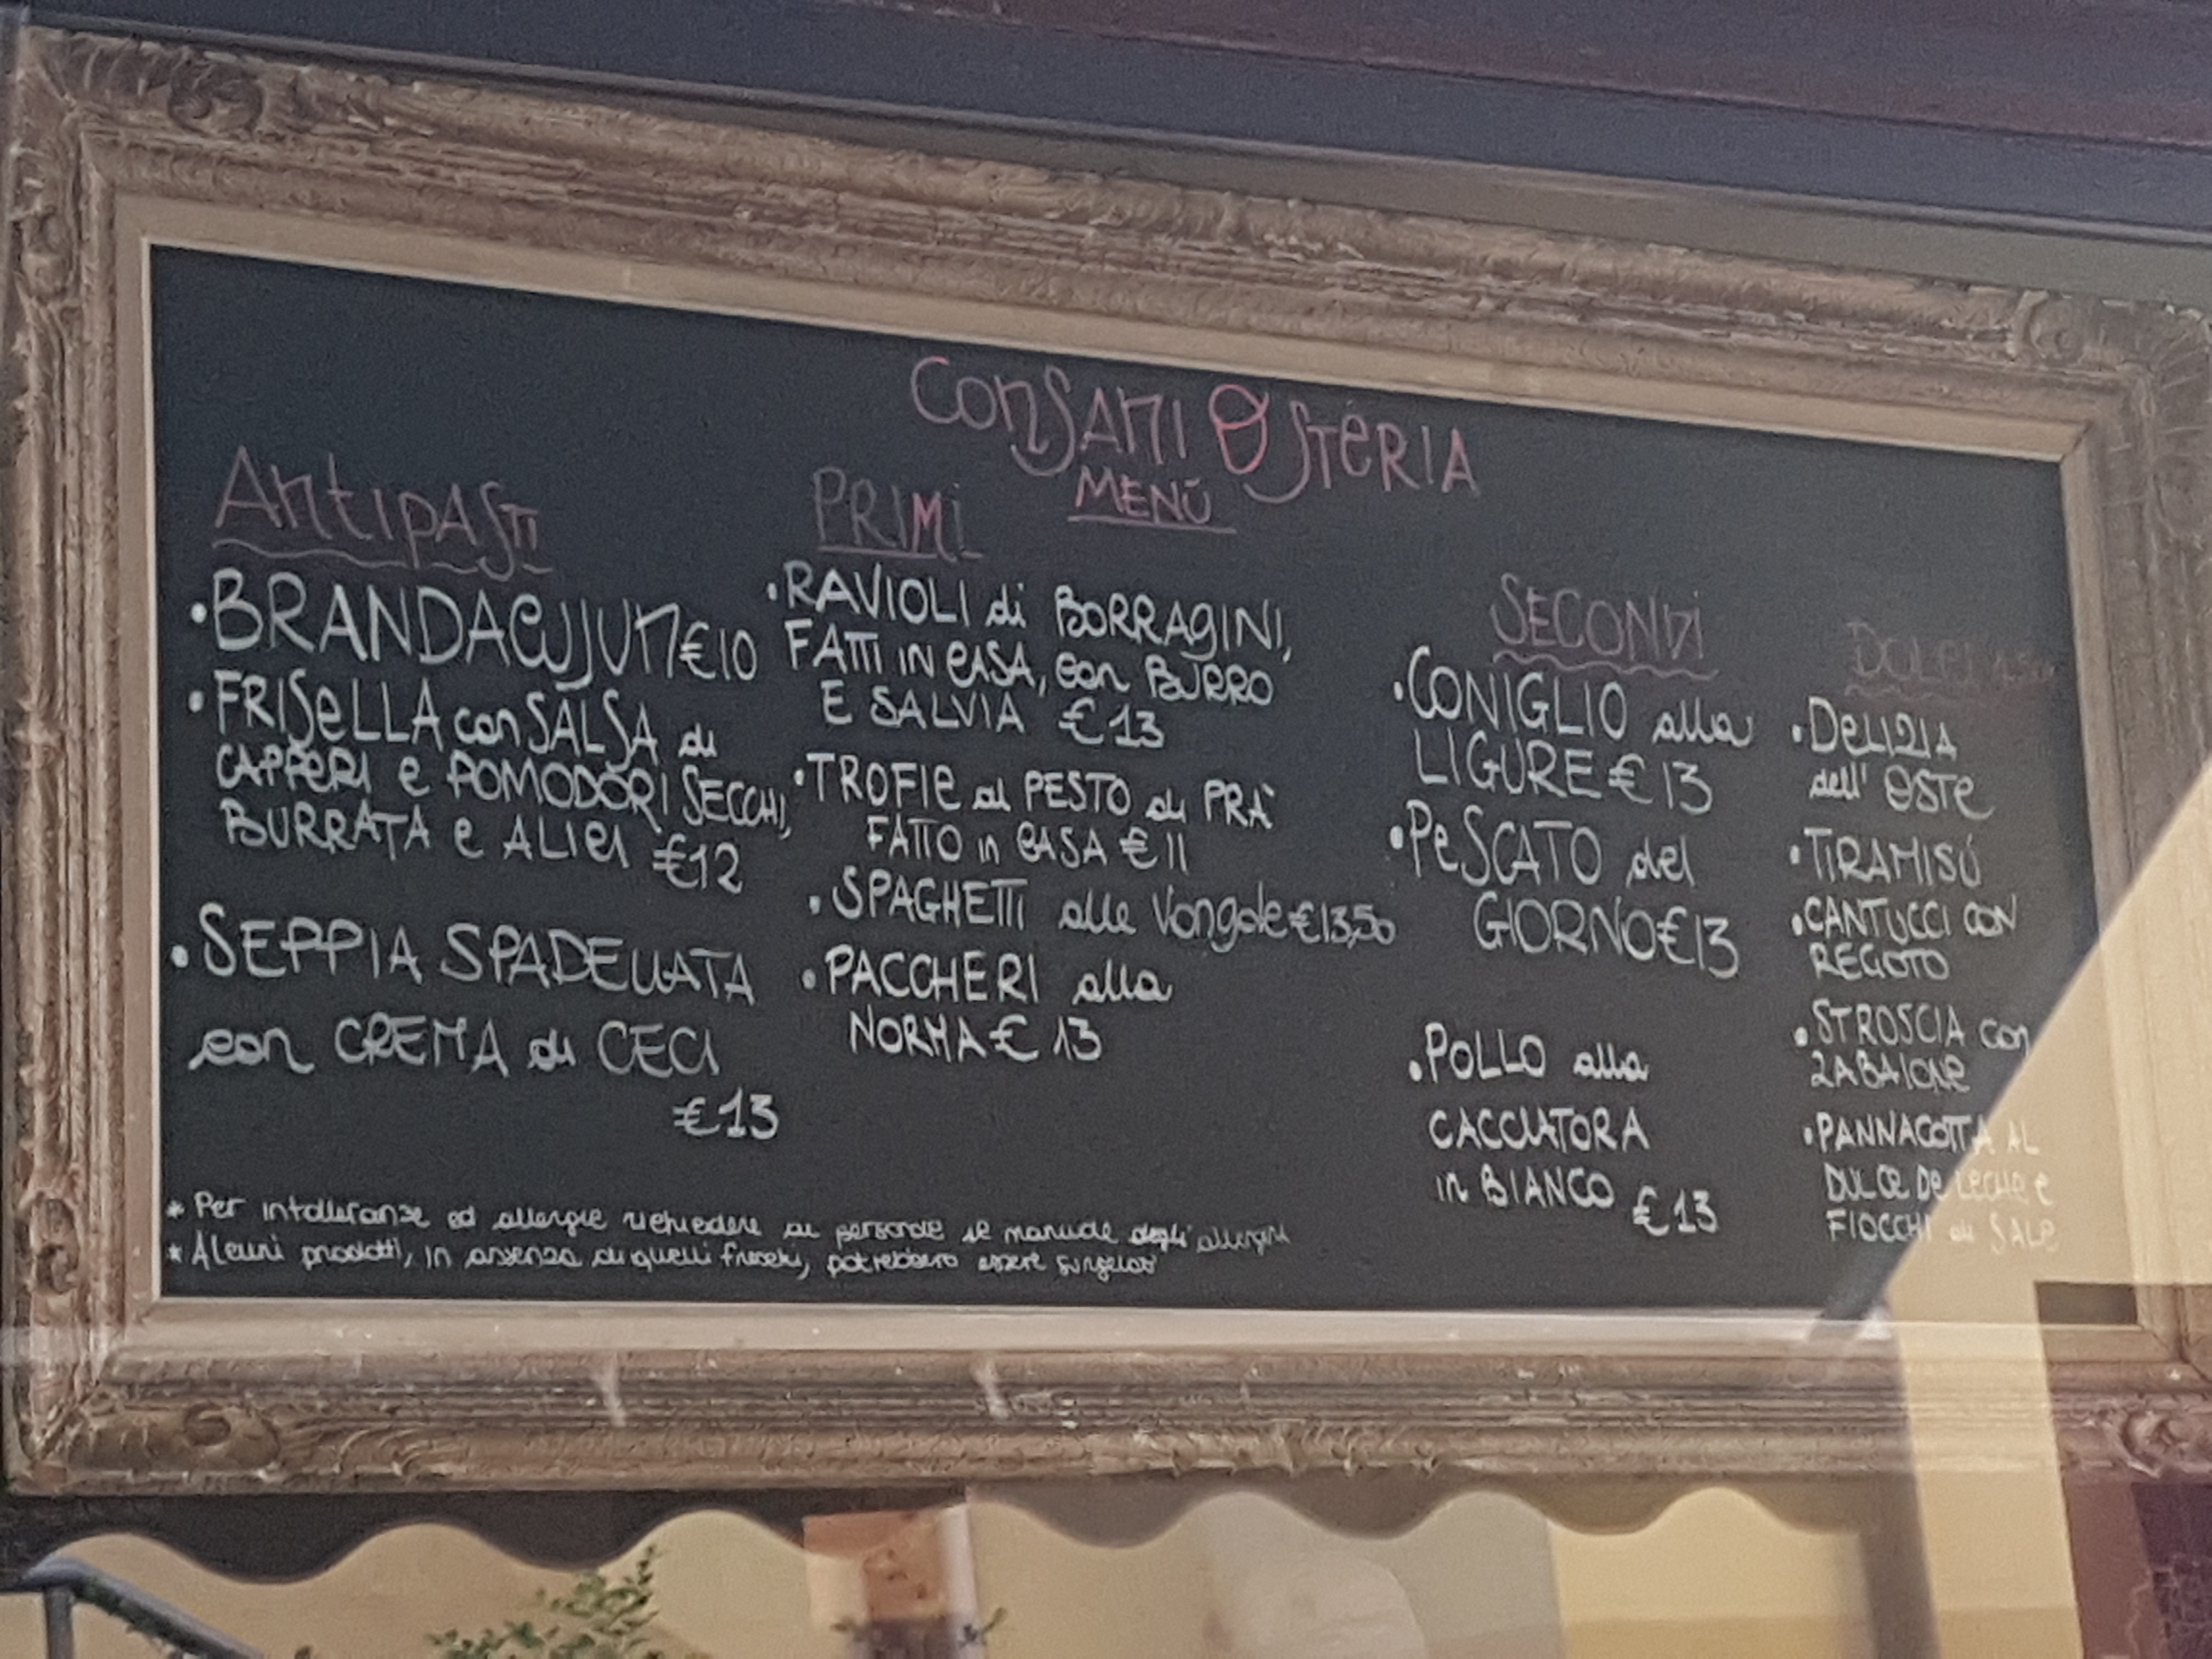 Consani Osteria
MENÙ
Antipasti
• BRANDACUJUN €10
• FRISELLA con SALSA di
CAPPERI e POMODORI SECCHI,
BURRATA e ALICI €12
• SEPPIA SPADELLATA
con CREMA di CECI
€13
PRIMI
• RAVIOLI di BORRAGINI,
FATTI IN CASA, con BURRO
E SALVIA €13
• TROFIE al PESTO di PRA'
FATTO in CASA €11
• SPAGHETTI alle Vongole €13,50
• PACCHERI alla
NORMA € 13
SECONDI
• CONIGLIO alla
LIGURE € 13
• PESCATO del
GIORNO €13
• POLLO alla
CACCIATORA
in BIANCO €13
• DELIZIA
dell' OSTE
• TIRAMISÚ
• CANTUCCI CON
• STROSCIA con
ZABAIONE
• PANNACOTTA AL
DULCE DE LECHE e
FIOCCHI di SALE
* Per intolleranze ed allergie richiedere al personale il manuale degli allergeni
* Alcuni prodotti, in assenza di quelli freschi, potrebbero essere surgelati